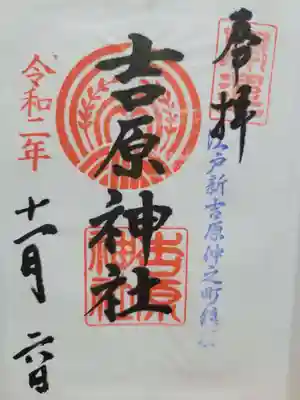 奉拝
江戸新吉原仲之町
吉原神社
吉原
神社
令和二年
十一月
六日